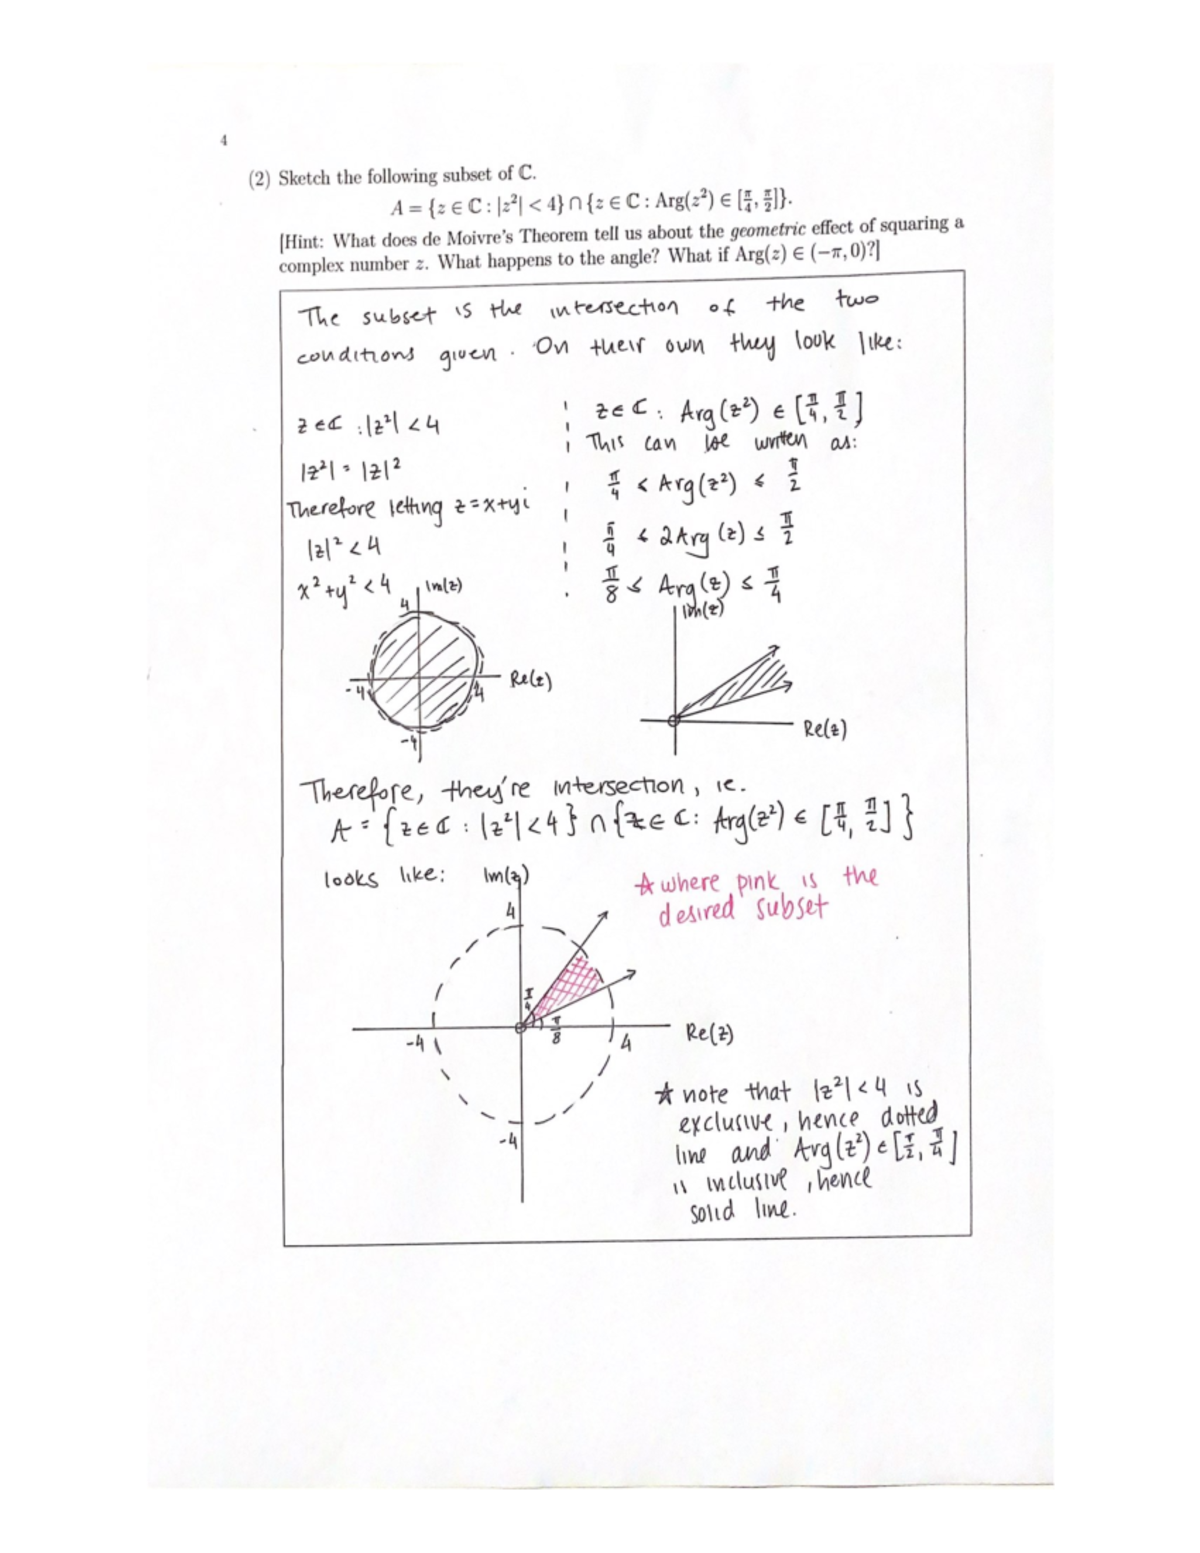 4
(2) Sketch the following subset of ℂ.
A = {z ∈ ℂ : |z²| < 4} ∩ {z ∈ ℂ : Arg(z²) ∈ [π/4, π/2]}.
[Hint: What does de Moivre's Theorem tell us about the geometric effect of squaring a
complex number z. What happens to the angle? What if Arg(z) ∈ (−π, 0)?]
The subset is the intersection of the two
conditions given. On their own they look like:
z∈ℂ : |z²| < 4
|z²| = |z|²
Therefore letting z=x+yi
|z|² < 4
x²+y² < 4
Im(z)
4
-4
4
Re(z)
-4
z∈ℂ : Arg(z²) ∈ [π/4, π/2]
This can be written as:
π/4 ≤ Arg(z²) ≤ π/2
π/4 ≤ 2Arg(z) ≤ π/2
π/8 ≤ Arg(z) ≤ π/4
Im(z)
Re(z)
Therefore, they're intersection, ie.
A = {z∈ℂ : |z²|<4} ∩ {z∈ℂ : Arg(z²) ∈ [π/4, π/2]}
looks like:
Im(z)
☆ where pink is the
desired subset
4
π/4
π/8
-4
4
Re(z)
-4
☆ note that |z²|<4 is
exclusive, hence dotted
line and Arg(z²) ∈ [π/2, π/4]
is inclusive, hence
solid line.